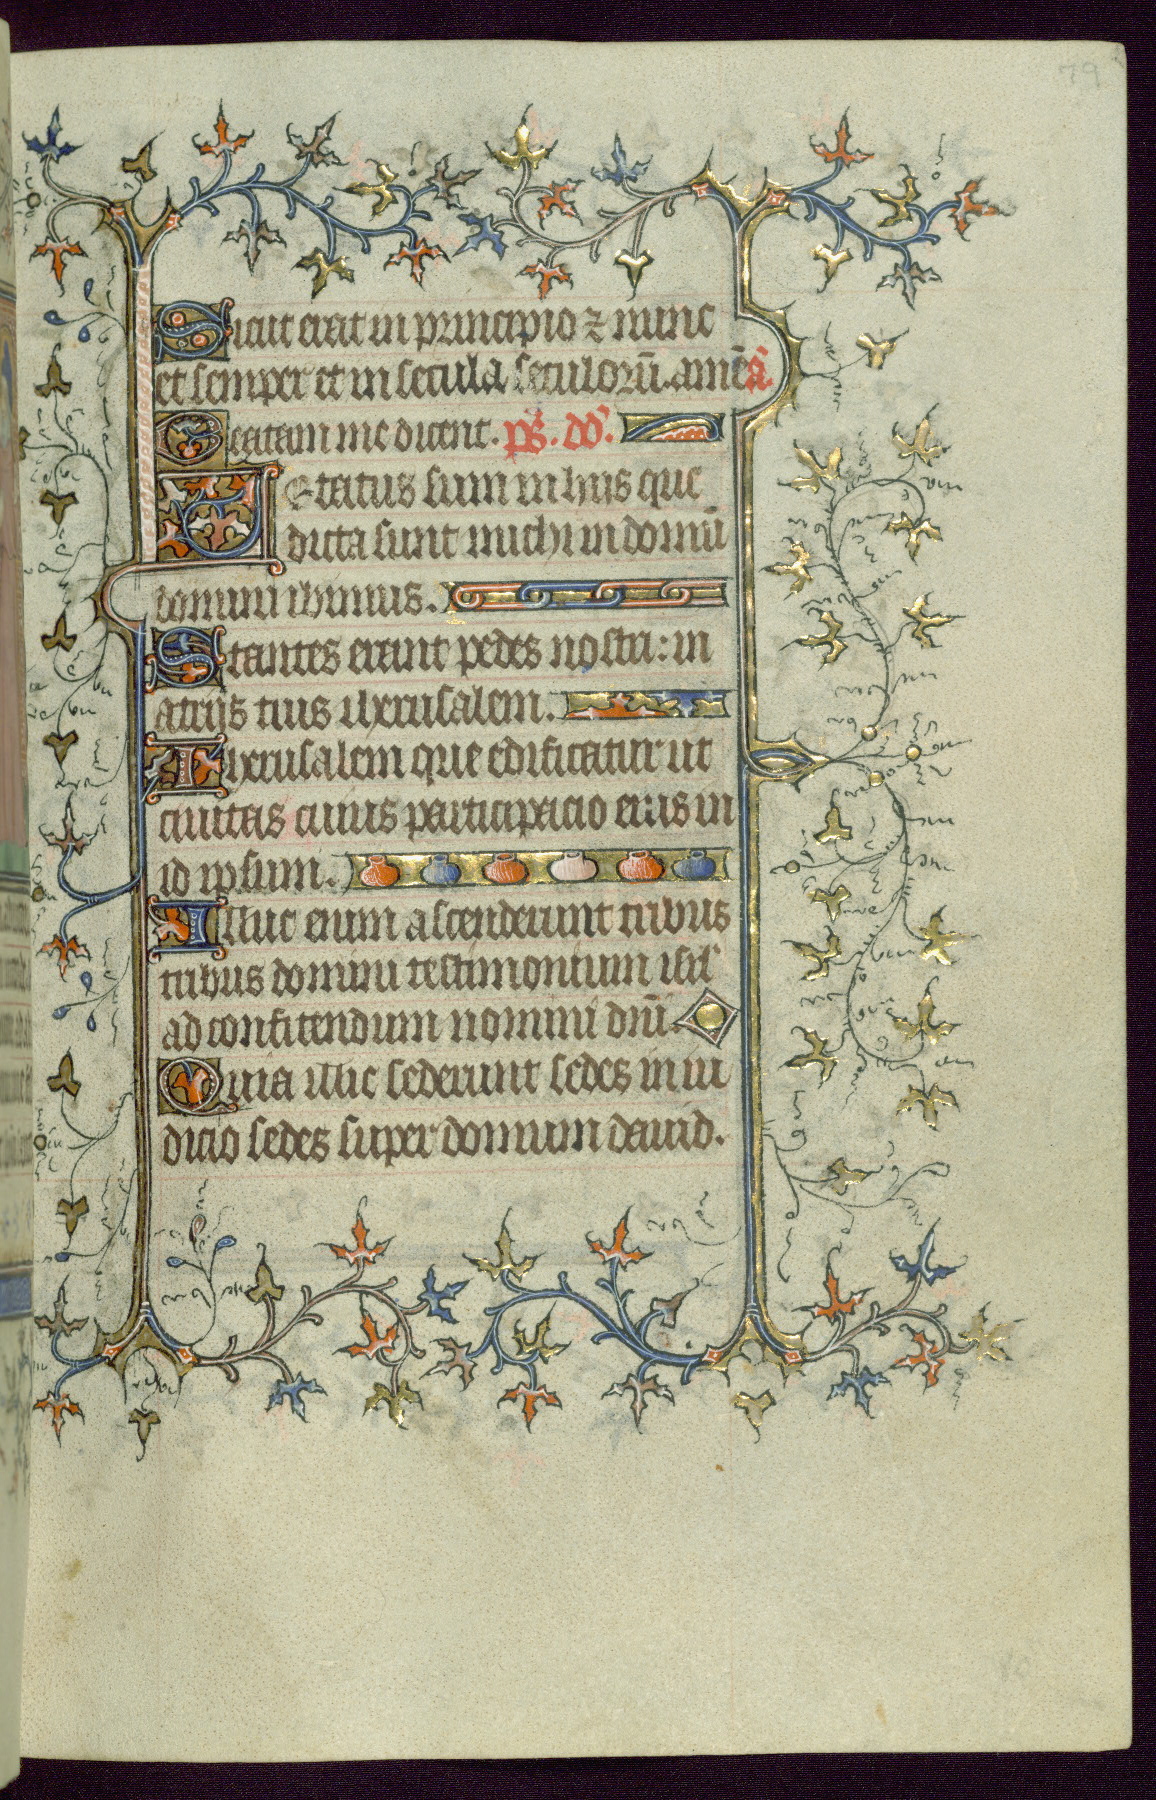 79
Sicut erat in principio ⁊ nunc
et semper et in secula seculorū. amē a̾.
Beatam me dicent. ps̾. dd̾.
Letatus sum in hijs que
dicta sunt michi in domū
domini ibimus.
Stantes erant pedes nostri: in
atrijs tuis iherusalem.
Iherusalem que edificatur ut
ciuitas cuius participacio eius in
id ipsum.
Illuc enim ascenderunt tribus
tribus domini testimonium isrl̾
ad confitendum nomini dn̄i.
Quia illic sederunt sedes in iu
dicio sedes super domum dauid.